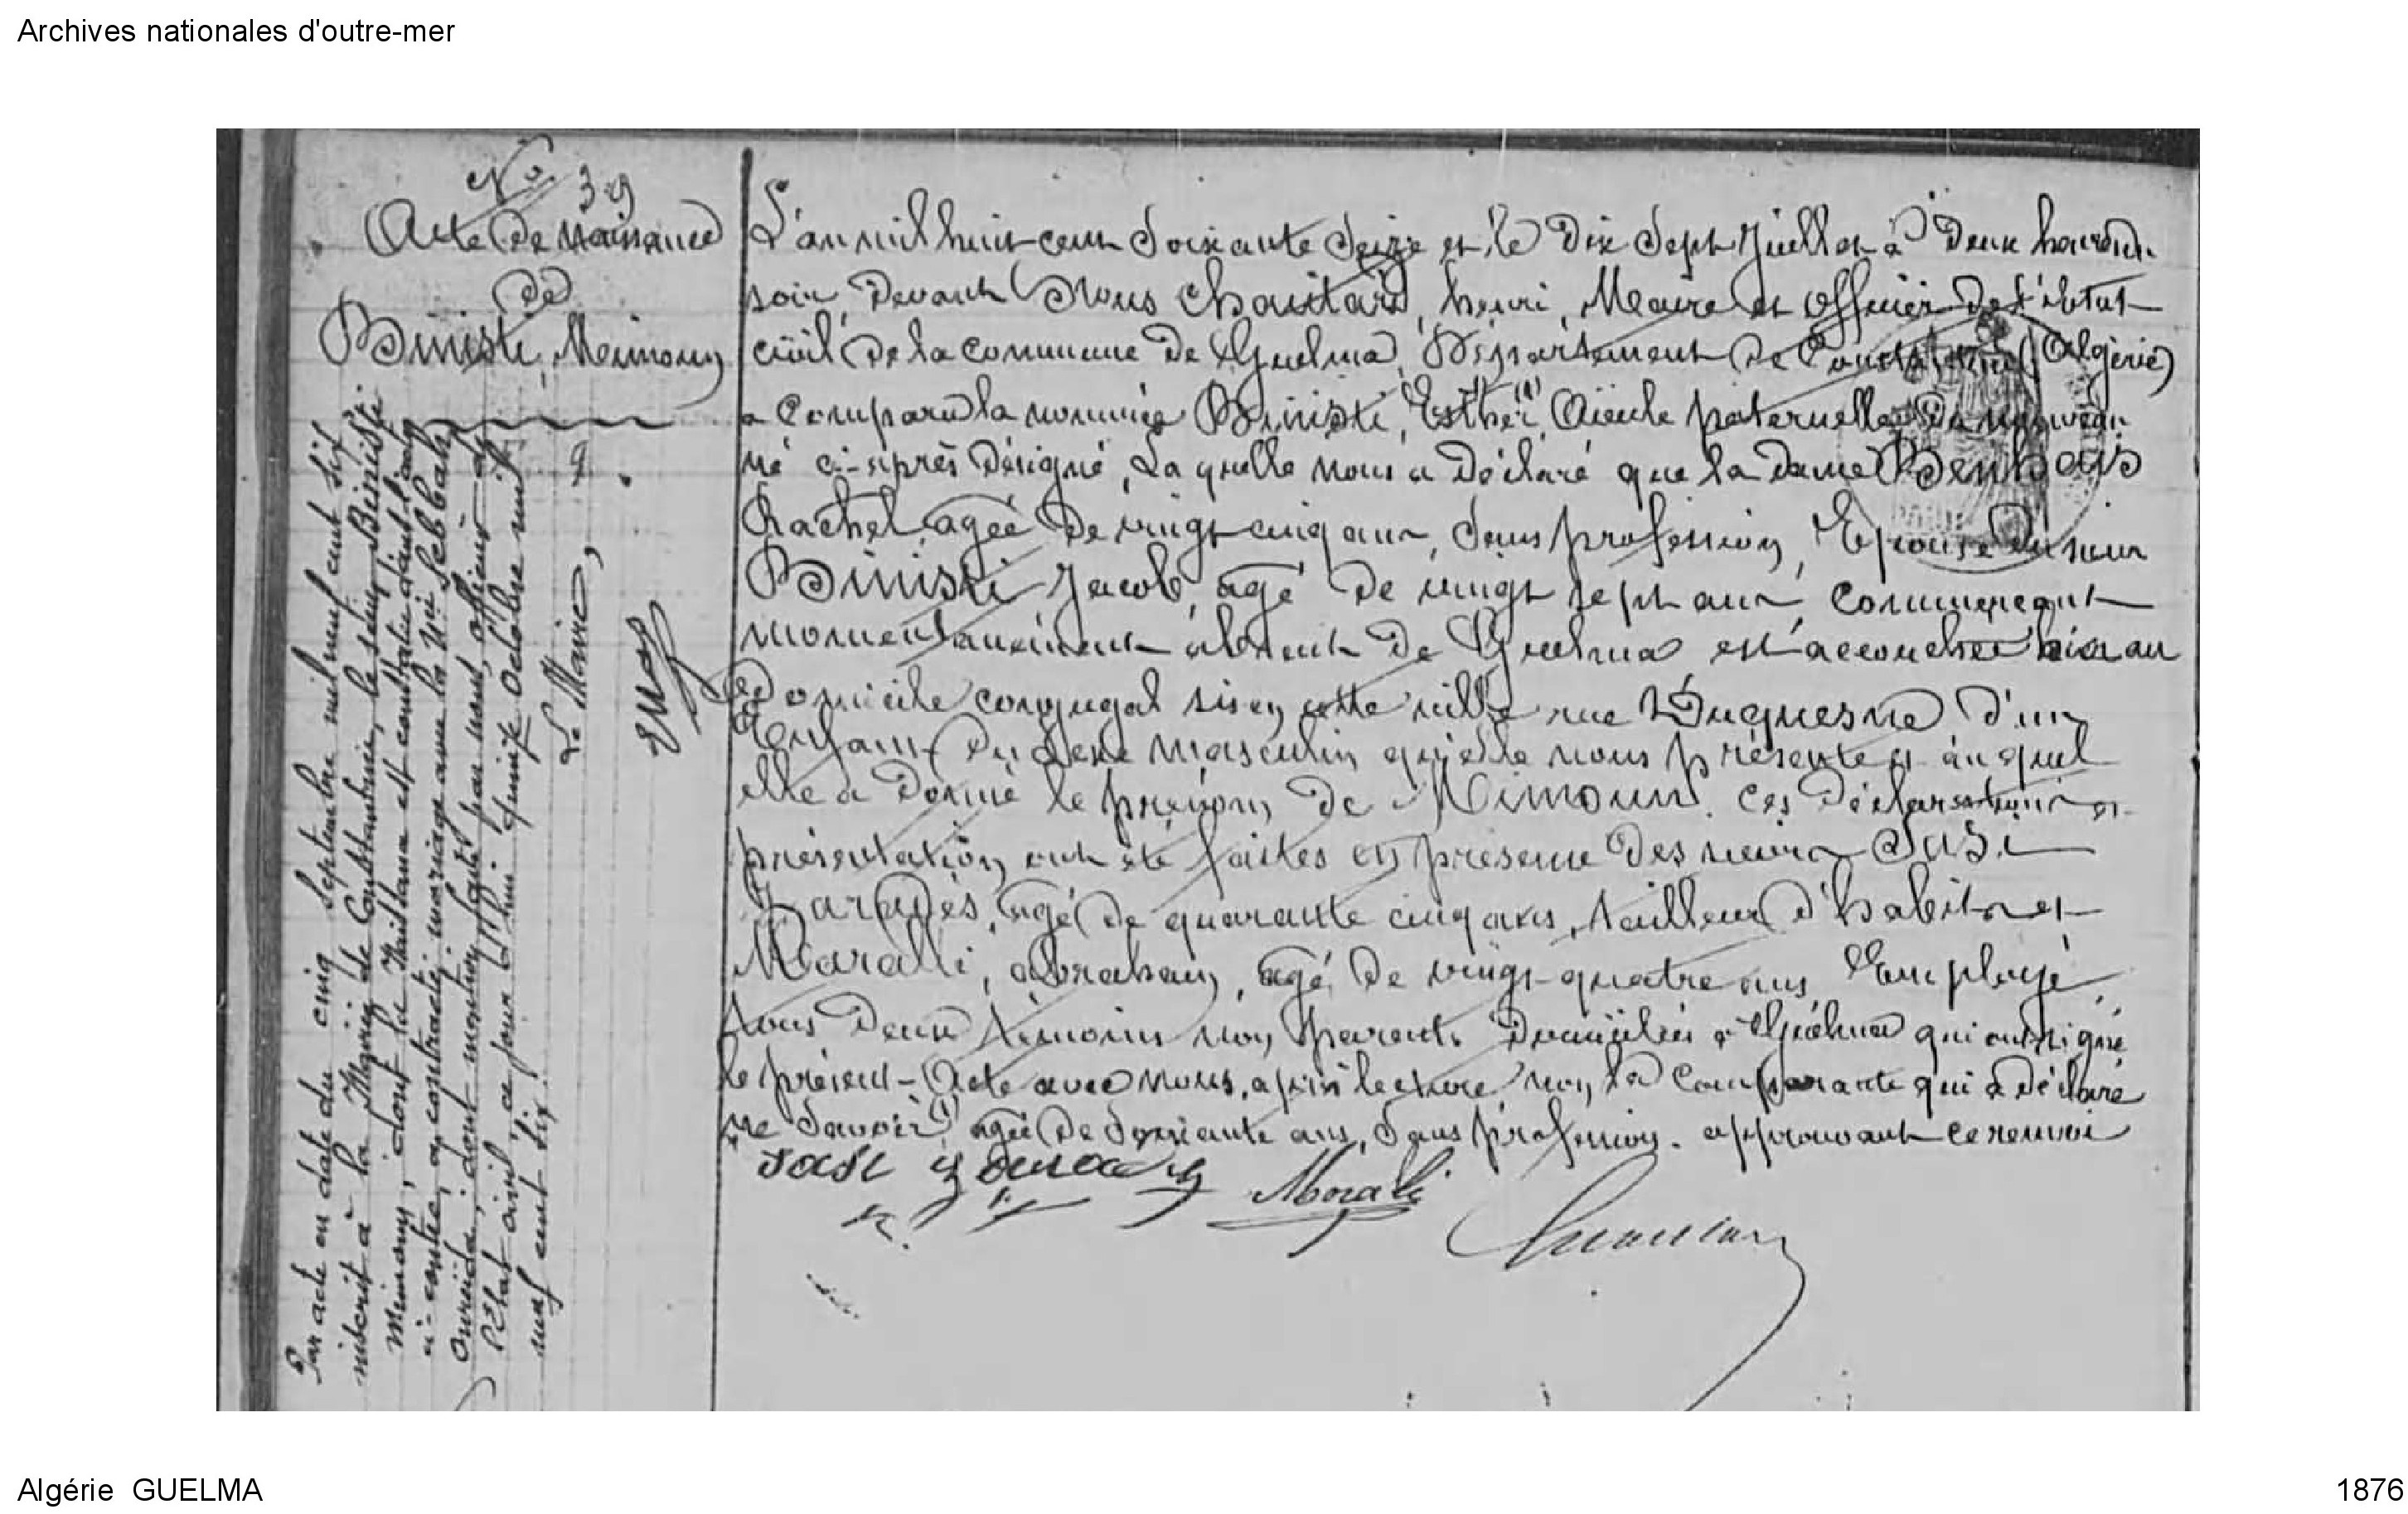 Archives nationales d'outre-mer
No 39
Acte de Naissance
de
Binisti, Meimoun
L'an mil huit cent Soixante Seize et le Dix Sept Juillet à Deux heures du
soir, Devant Nous Chautard, henri, Maire et Officier de l'état
civil de la Commune de Guelma, Département de Constantine (Algérie)
a Comparu la nommée Binisti, Esther (1), Aïeule paternelle du nouveau
né ci-après Désigné, Laquelle nous a Déclaré que la dame
Rachel agée De vingt cinq ans, Sans profession, Epouse Du sieur
Binisti Jacob, agé De vingt sept ans, Commerçant
momentanément absent De Guelma est accouchée hier au
Domicile conjugal sis en cette ville rue Duquesne D'un
Enfant Du Sexe masculin qu'elle nous présente et auquel
elle a Donné le prénom De Mimoun. Ces Déclaration et
présentation ont été faites en présence Des sieurs Susi
agé De quarante cinq ans, tailleur D'habits et
Moralli, abraham, agé De vingt-quatre ans, Employé,
tous Deux témoins non parents Domiciliés à Guelma qui ont signé
le présent-Acte avec nous, après lecture, non la Comparante qui a Déclaré
ne Savoir (1) agée De Soixante ans, Sans profession. approuvant ce renvoi
Morali
Par acte en date du cinq Septembre mil neuf cent six
inscrit à la Mairie de Constantine, le sieur Binisti
Mimoun, dont la Naissance est constatée dans l'acte
ci-contre, a contracté mariage avec la Dlle Sebbah
Oureïda, dont mention faite par nous, officier de
l'Etat civil, ce jour d'hui quinze Octobre mil
neuf cent six.
Le Maire,
Algérie GUELMA
1876